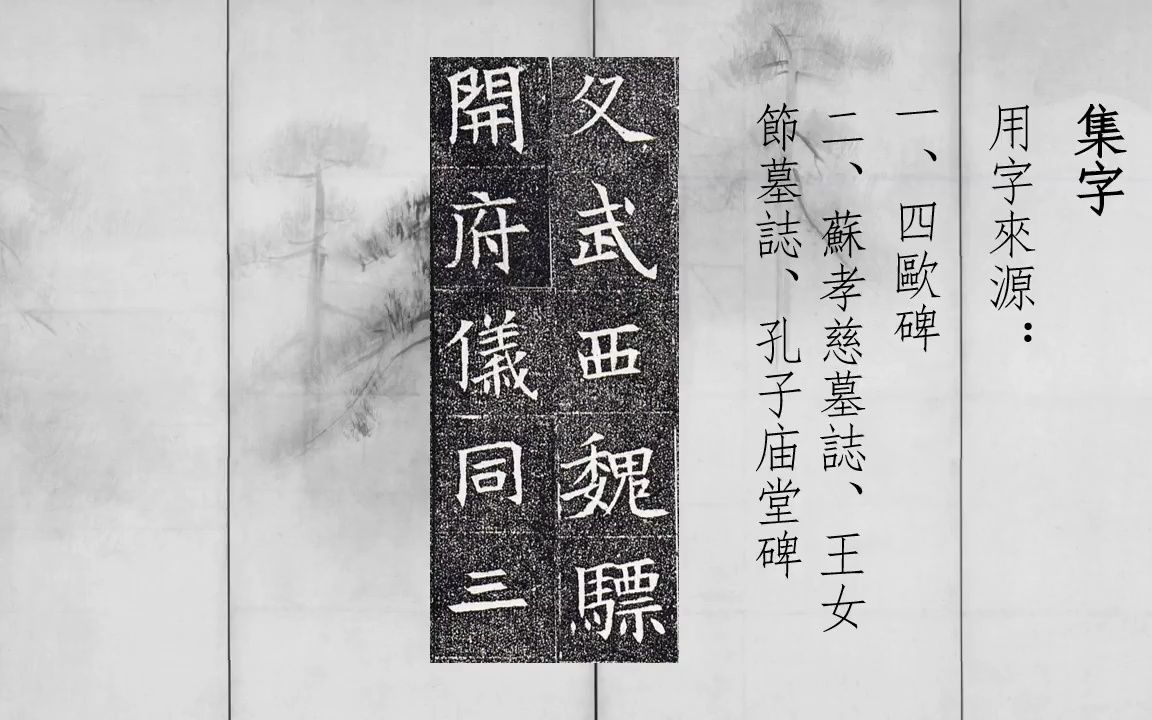 集字
用字來源：
一、四歐碑
二、蘇孝慈墓誌、王女
節墓誌、孔子庙堂碑
父武西魏驃
開府儀同三